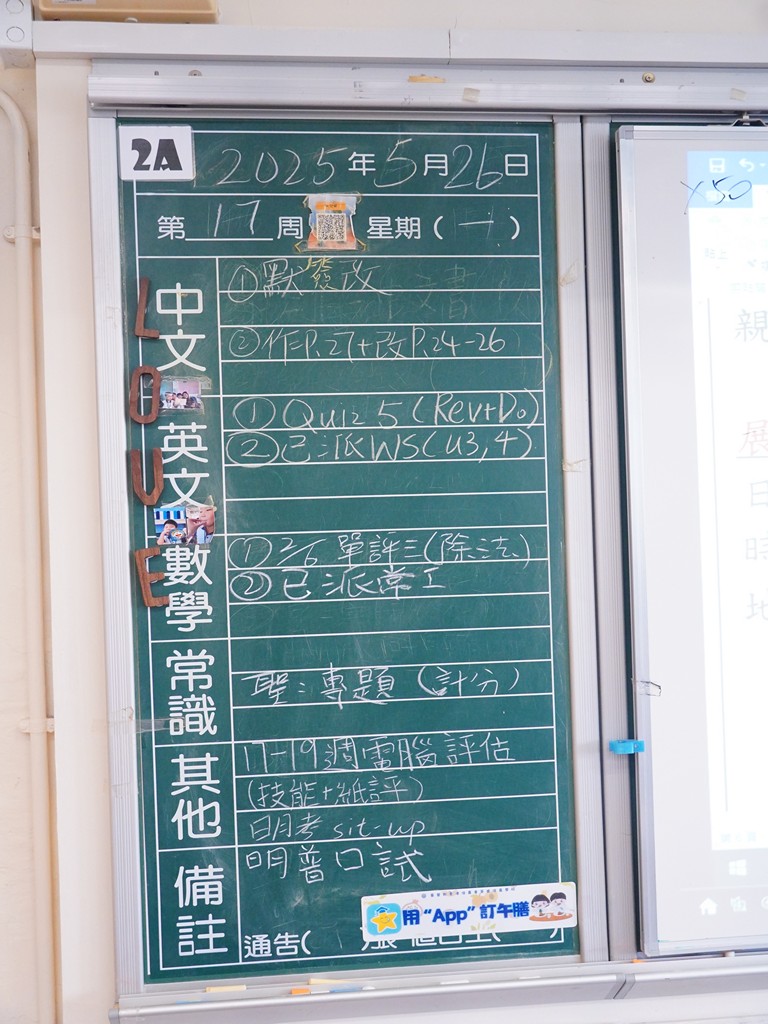 2A
2025年5月26日
第17周 星期(一)
LOVE
中文
①默簽改
②作P.27+改P.24-26
英文
①Quiz 5 (Rev+Do)
②已派WS(U3,4)
數學
①2/6 單評三(除法)
②已派常工
常識
聖：專題（計分）
其他
17-19週電腦評估
(技能+紙評)
明考 sit-up
備註
明普口試
用“App”訂午膳
通告(
X50
親
展
日
時
地